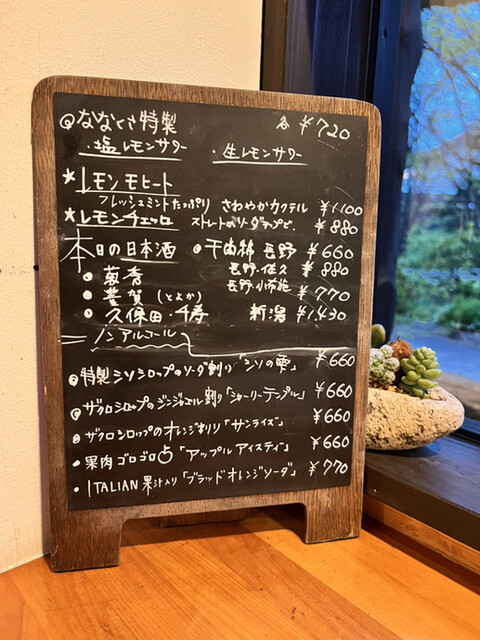 ◎ななくさ特製 各 ¥720
・塩レモンサワー ・生レモンサワー
★レモンモヒート
フレッシュミントたっぷり さわやかカクテル ¥1,100
★レモンチェッロ ストレートorソーダアップで。 ¥880
本日の日本酒 ● 千曲錦 長野 ¥660
● 菊秀 長野・佐久 ¥880
● 豊賀(とよか) 長野・小布施 ¥770
● 久保田・千寿 新潟 ¥1,430
ノンアルコール
◎特製シソシロップのソーダ割り「シソの雫」 ¥660
◎ザクロシロップのジンジャエール割り「シャーリーテンプル」 ¥660
・ザクロシロップのオレンジ割り「サンライズ」 ¥660
・果肉ゴロゴロ 「アップルアイスティ」 ¥660
・ITALIAN果汁入り「ブラッドオレンジソーダ」 ¥770